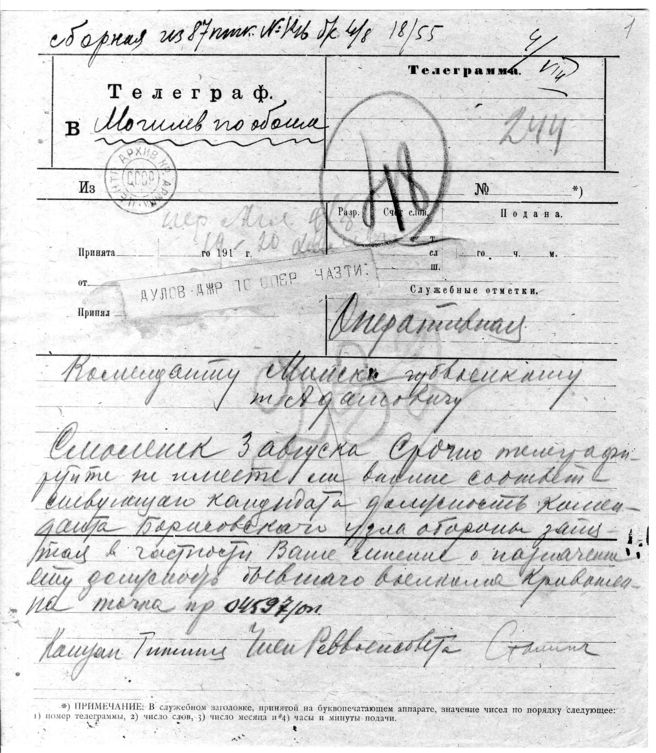 сборная из 87 пшк. № 1426 б/к 4/8 18/55
4/VIII
1
Телеграмма.
Телеграф.
В Могилев по обоим
244
АРХИВ СССР
Из № *)
418
Разр. Счет слов. Подана.
19 20
Принята го 191 г. сл го ч. м.
ш.
от
ДУЛОВ-ДЖР ПО ОПЕР ЧАЗТИ:
Служебные отметки.
Принял
Оперативная
Коменданту Минска губвоенкому
т Адамовичу
Смоленск 3 августа Срочно телеграфи-
руйте не имеете ли ввиду соответ-
ствующаго кандидата должность комен-
данта Борисовскаго узла обороны запя-
тая в частности Ваше мнение о назначении
эту должность бывшаго военкома Кривошеи-
на точка нр 04597/оп
Член Реввоенсовета Сталин
*) ПРИМЕЧАНИЕ: В служебном заголовке, принятой на буквопечатающем аппарате, значение чисел по порядку следующее:
1) номер телеграммы, 2) число слов, 3) число месяца и 4) часы и минуты подачи.